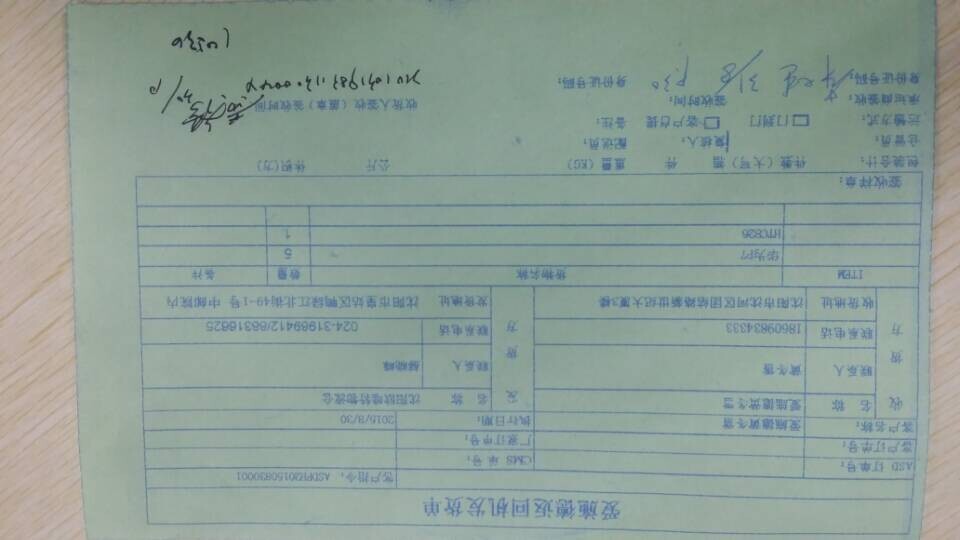 爱施德返回机发货单
客户指令: ASDPH20150830001
ASD 订单号: CMS 单号:
客户订单号: 厂家订单号:
客户名称: 爱施德黄冬雪 执行日期: 2015/8/30
收货方 名 称 爱施德黄冬雪 发货方 名 称
联系人 黄冬雪 联系人
联系电话 18609834333 联系电话 024-31989412/88316825
收货地址 沈阳市沈河区团结路新世纪大厦3楼 发货地址 沈阳市皇姑区鸭绿江北街49-1号 中邮院内
ITEM 货物名称 数量 备注
华为P7 5
HTC826 1
签收样章:
包装合计: 件数(大写) 箱 件 重量(KG) 公斤 体积(方)
仓管员: 复核人: 配送员:
运输方式: 门到门 客户自提 备注:
承运商签收: 签收时间: 收货人签收(盖章)签收时间
身份证号码: 身份证号码: